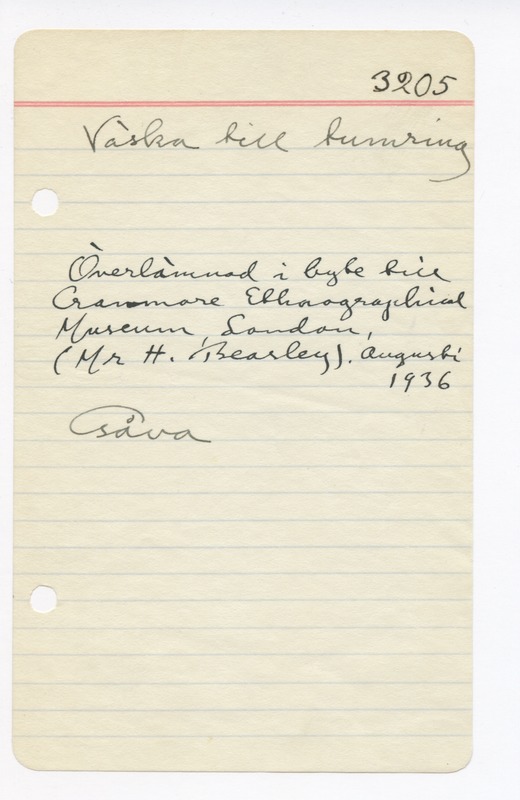 3205
Väska till tumring
Överlämnad i byte till
Cranmore Ethnographical
Museum, London,
(Mr H. Beasley). augusti
1936
Gåva